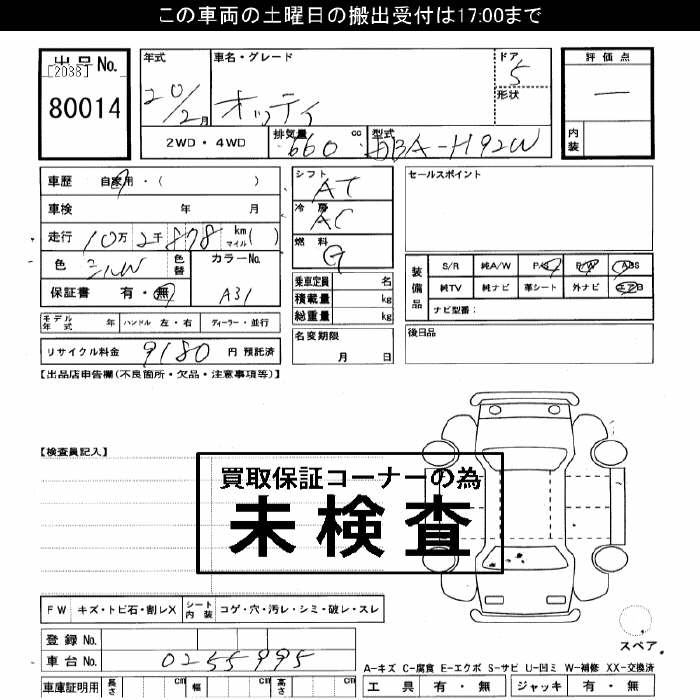 この車両の土曜日の搬出受付は17:00まで
出品No.
[2038]
80014
年式
20/2月
車名・グレード
オッティ
ドア
5
形状
2WD・4WD
排気量 660 cc
型式 DBA-H92W
評価点
―
内装
車歴 自家用・( )
車検 年 月
走行 10万2千878 km マイル( )
色 シルバ 色替
カラーNo.
A31
保証書 有・無
シフト
AT
冷房
AC
燃料
G
乗車定員 名
積載量 kg
総重量 kg
名変期限
月 日
セールスポイント
装備品
S/R 純A/W P/S P/W ABS
純TV 純ナビ 革シート 外ナビ エアB
ナビ型番:
後日品
モデル年式 年 ハンドル 左・右 ディーラー・並行
リサイクル料金 9180 円 預託済
【出品店申告欄(不良箇所・欠品・注意事項等)】
【検査員記入】
買取保証コーナーの為
未検査
FW キズ・トビ石・割レX シート内装 コゲ・穴・汚レ・シミ・破レ・スレ
登録No.
車台No. 0255995
車庫証明用 長さ cm 幅 cm 高さ cm
スペア
A-キズ C-腐食 E-エクボ S-サビ U-凹ミ W-補修 XX-交換済
工具 有・無 ジャッキ 有・無